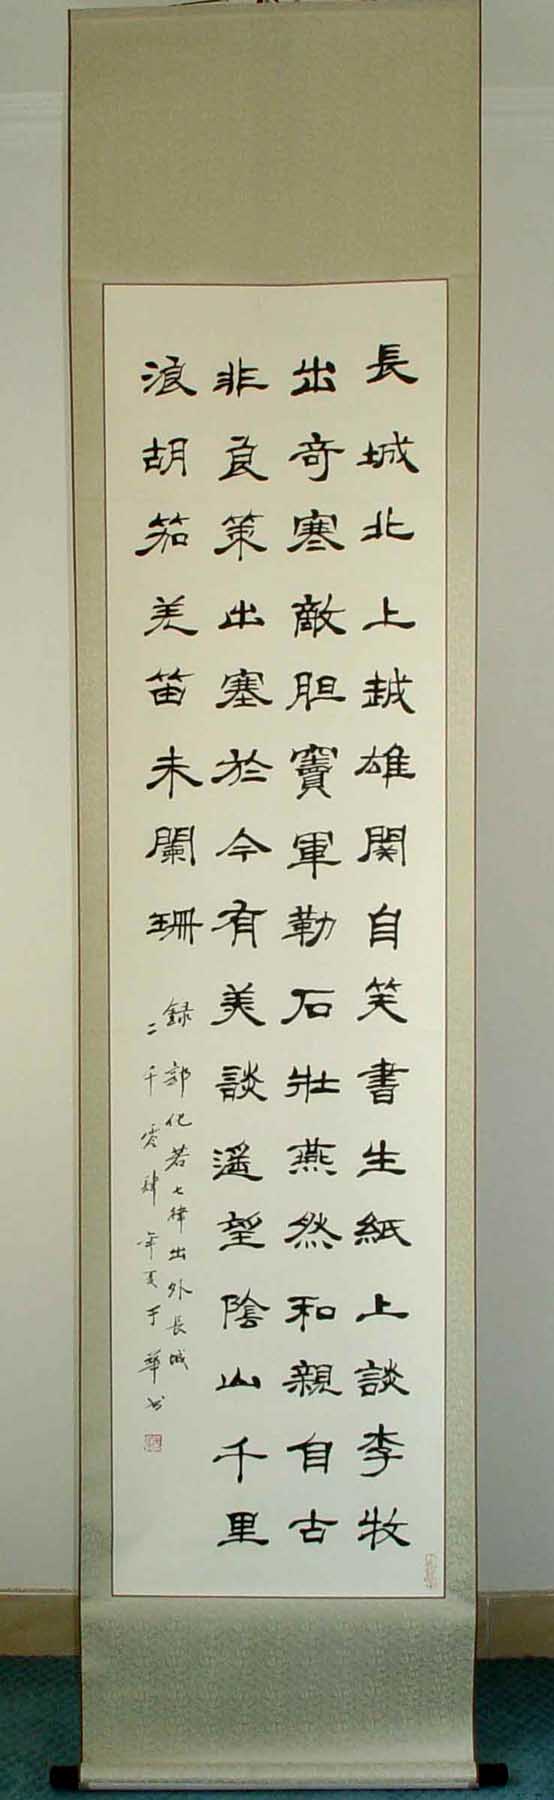 長城北上越雄関自笑書生紙上談李牧
出奇寒敵胆竇軍勒石壮燕然和親自古
非良策出塞於今有美談遥望陰山千里
浪胡笳羌笛未闌珊
録郭化若七律出外長城
二千零肆年夏于華书